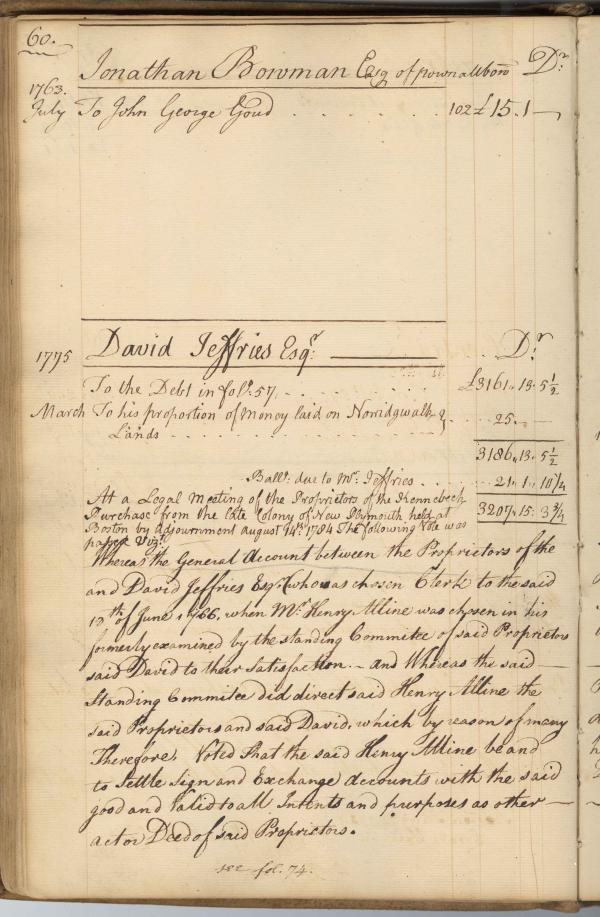 60.
Jonathan Bowman Esq of pownallboro Dr.
1763.
July To John George Goud . . . . . . 102 £15.1—
1775 David Jeffries Esqr. Dr.
To the Debt in folo. 57, . . . . . £3161.. 13.. 5 1/2
March To his proportion of money laid on Norridgwalk } . . . 25.. —
Lands . . . . . . . . . .
3186.. 13.. 5 1/2
Balle. due to Mr. Jeffries . . . . 21.. 1.. 10 1/4
3207.. 15.. 3 3/4
At a Legal Meeting of the Proprietors of the Kennebeck
Purchase from the late Colony of New Plymouth held at
Boston by adjournment august 14th. 1784 The following Vote was
passed Vizt.
Whereas the General Account between the Proprietors of the
and David Jeffries Esqr. (who was chosen Clerk to the said
13th of June 1766, when Mr. Henry Alline was chosen in his
formerly examined by the standing Committee of said Proprietors
said David to their Satisfaction.— and Whereas the said —
Standing Commitee did direct said Henry Alline the
said Proprietors and said David, which by reason of many
Therefore, Voted That the said Henry Alline be and
to Settle Sign and Exchange Accounts with the said
good and Valid to all Intents and purposes as other —
act or Deed of said Proprietors.
see fol. 74.